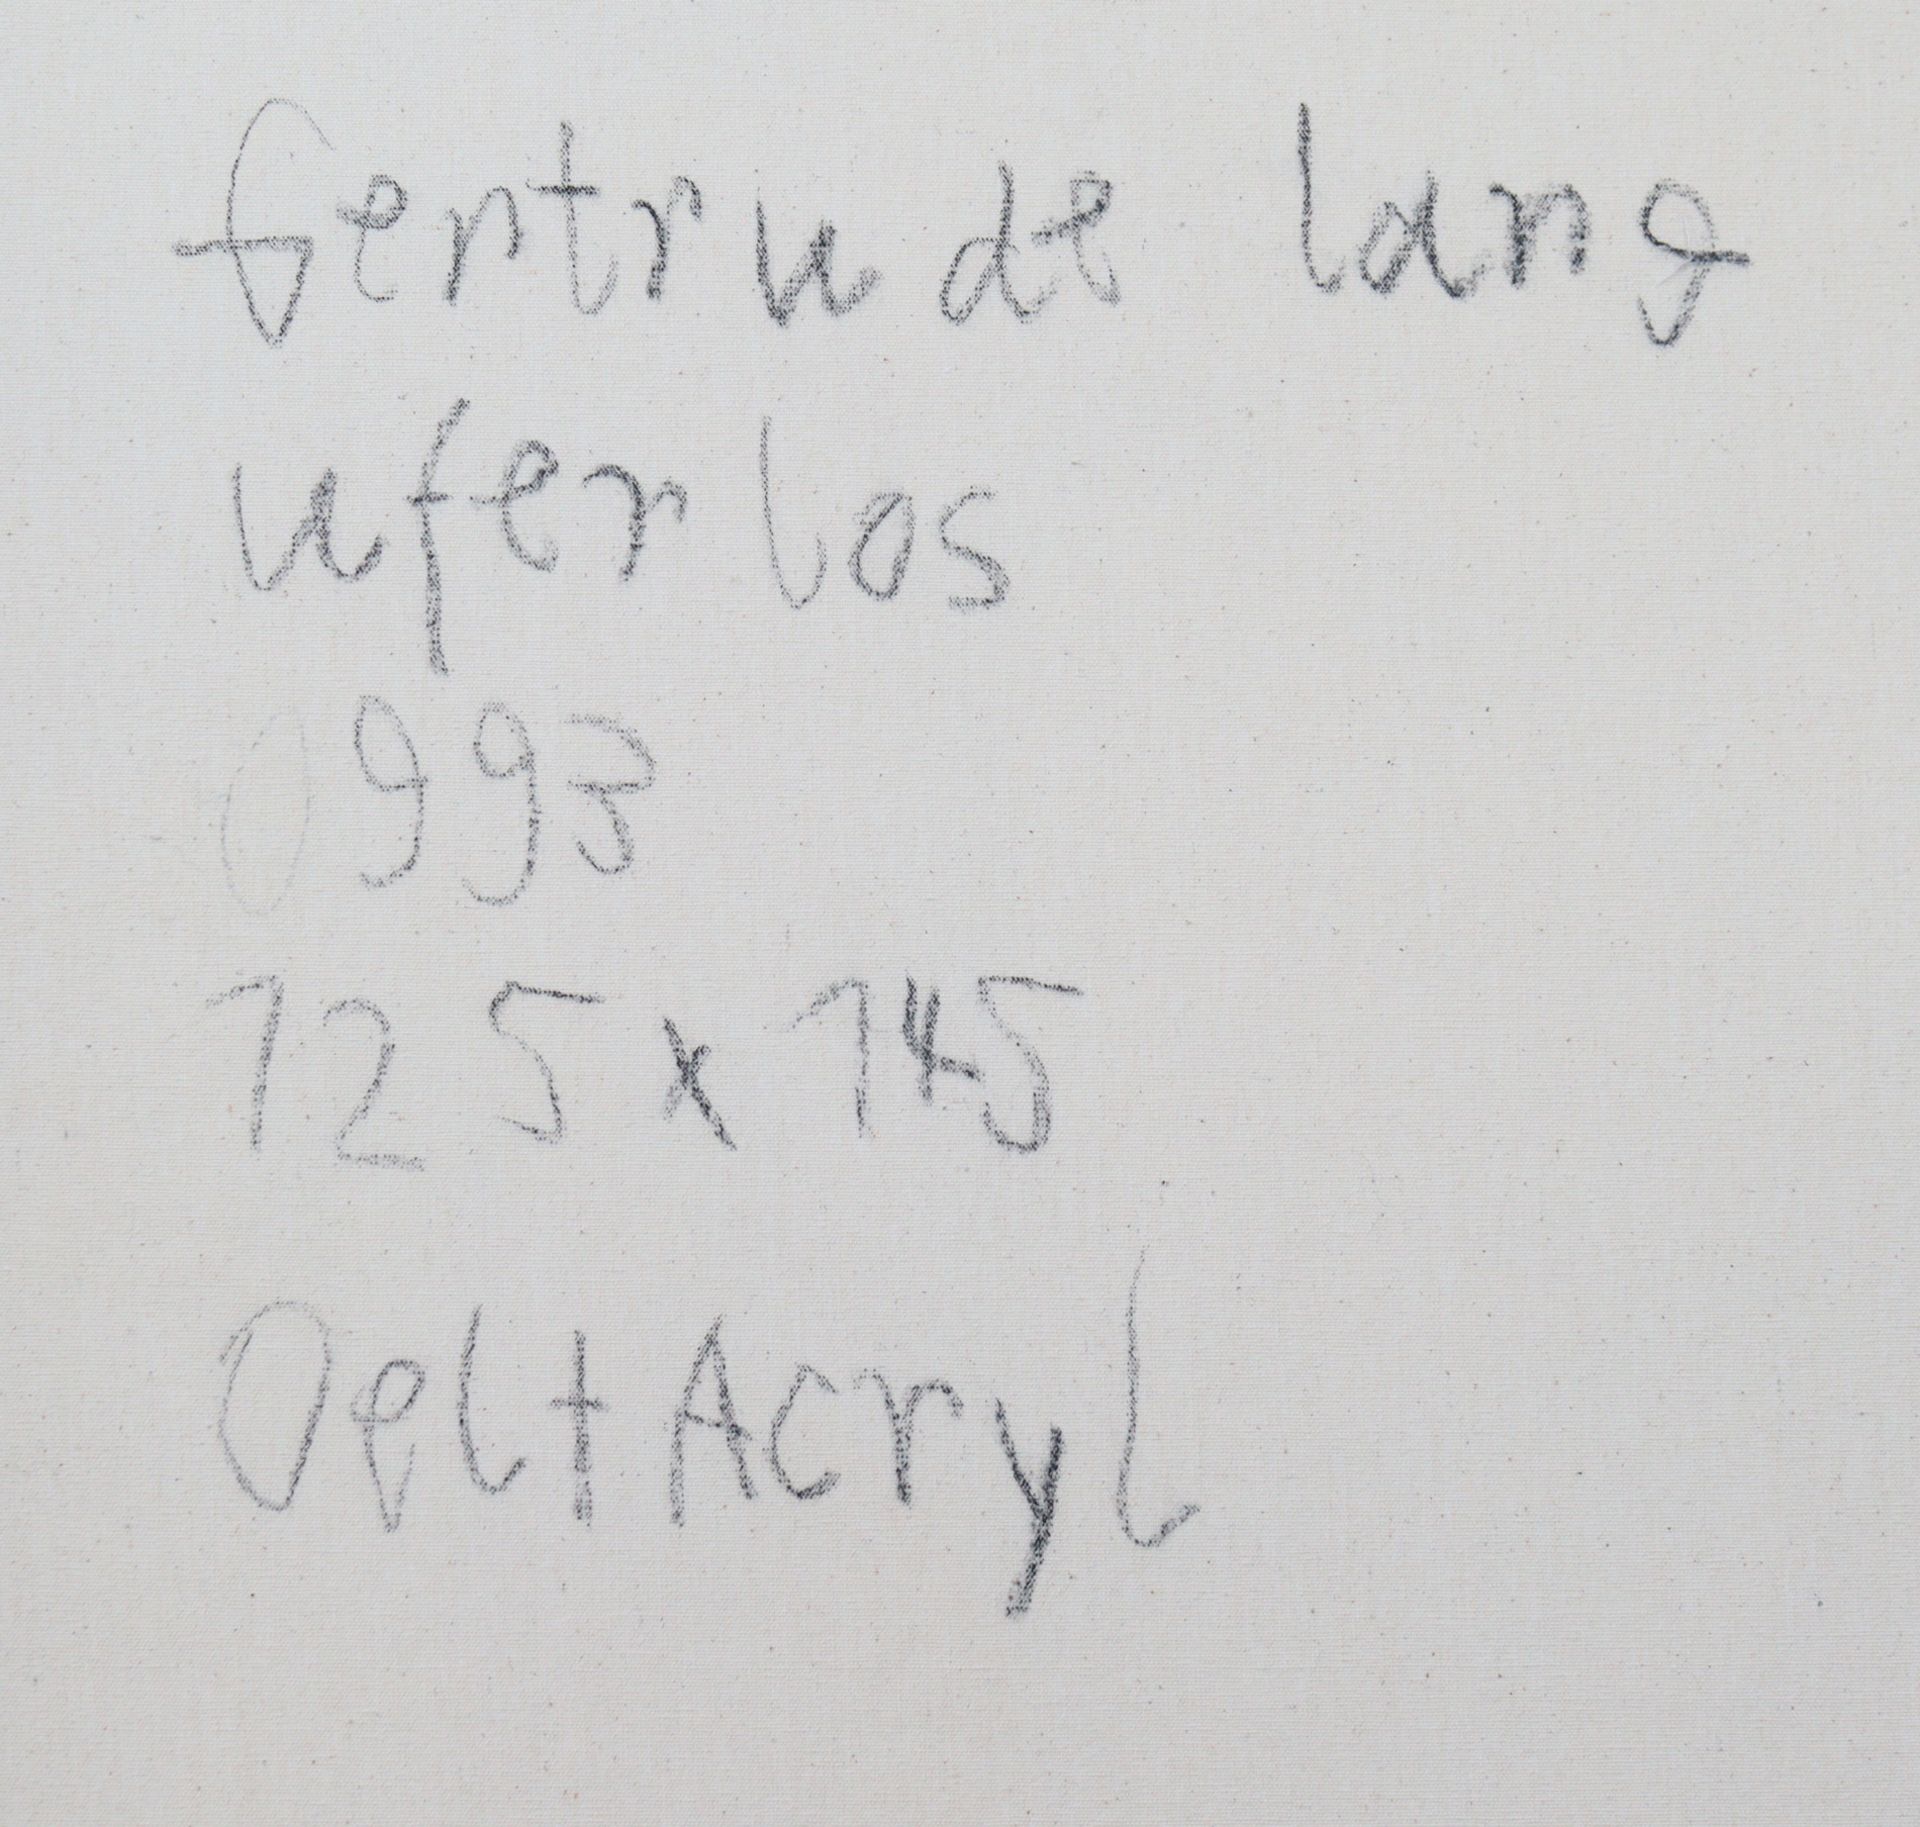 Gertrude lang
uferlos
0993
125 x 145
Oel+Acryl